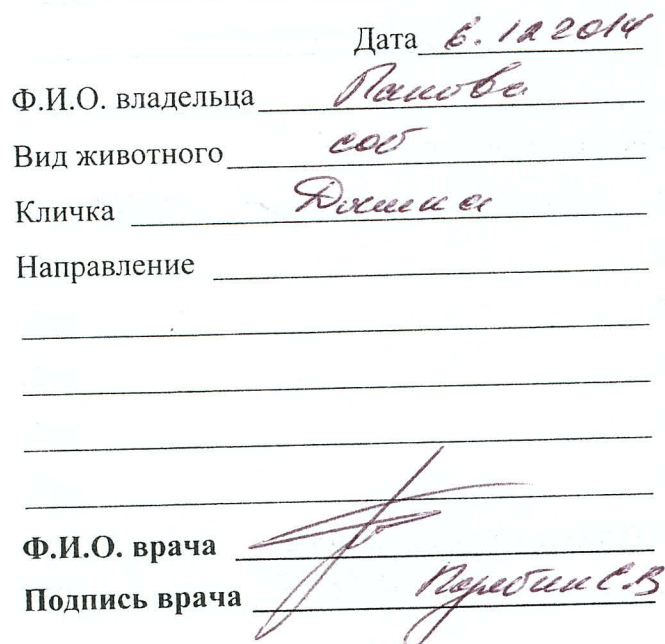 Дата 6.12 2014
Ф.И.О. владельца Панова
Вид животного соб
Кличка
Направление
Ф.И.О. врача
Подпись врача С.В